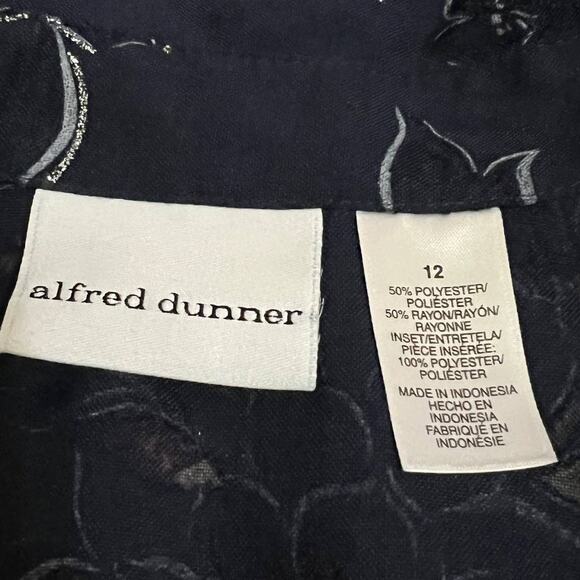 alfred dunner
12
50% POLYESTER/
POLIÉSTER
50% RAYON/RAYÓN/
RAYONNE
INSET/ENTRETELA/
PIÈCE INSÉRÉE:
100% POLYESTER/
POLIÉSTER
MADE IN INDONESIA
HECHO EN
INDONESIA
FABRIQUÉ EN
INDONÉSIE